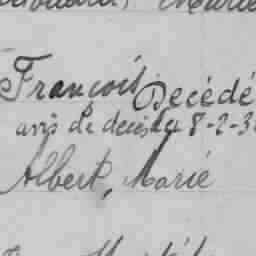 Marie
François Decédé
avis de decès le 8-2-3
Albert, Marié